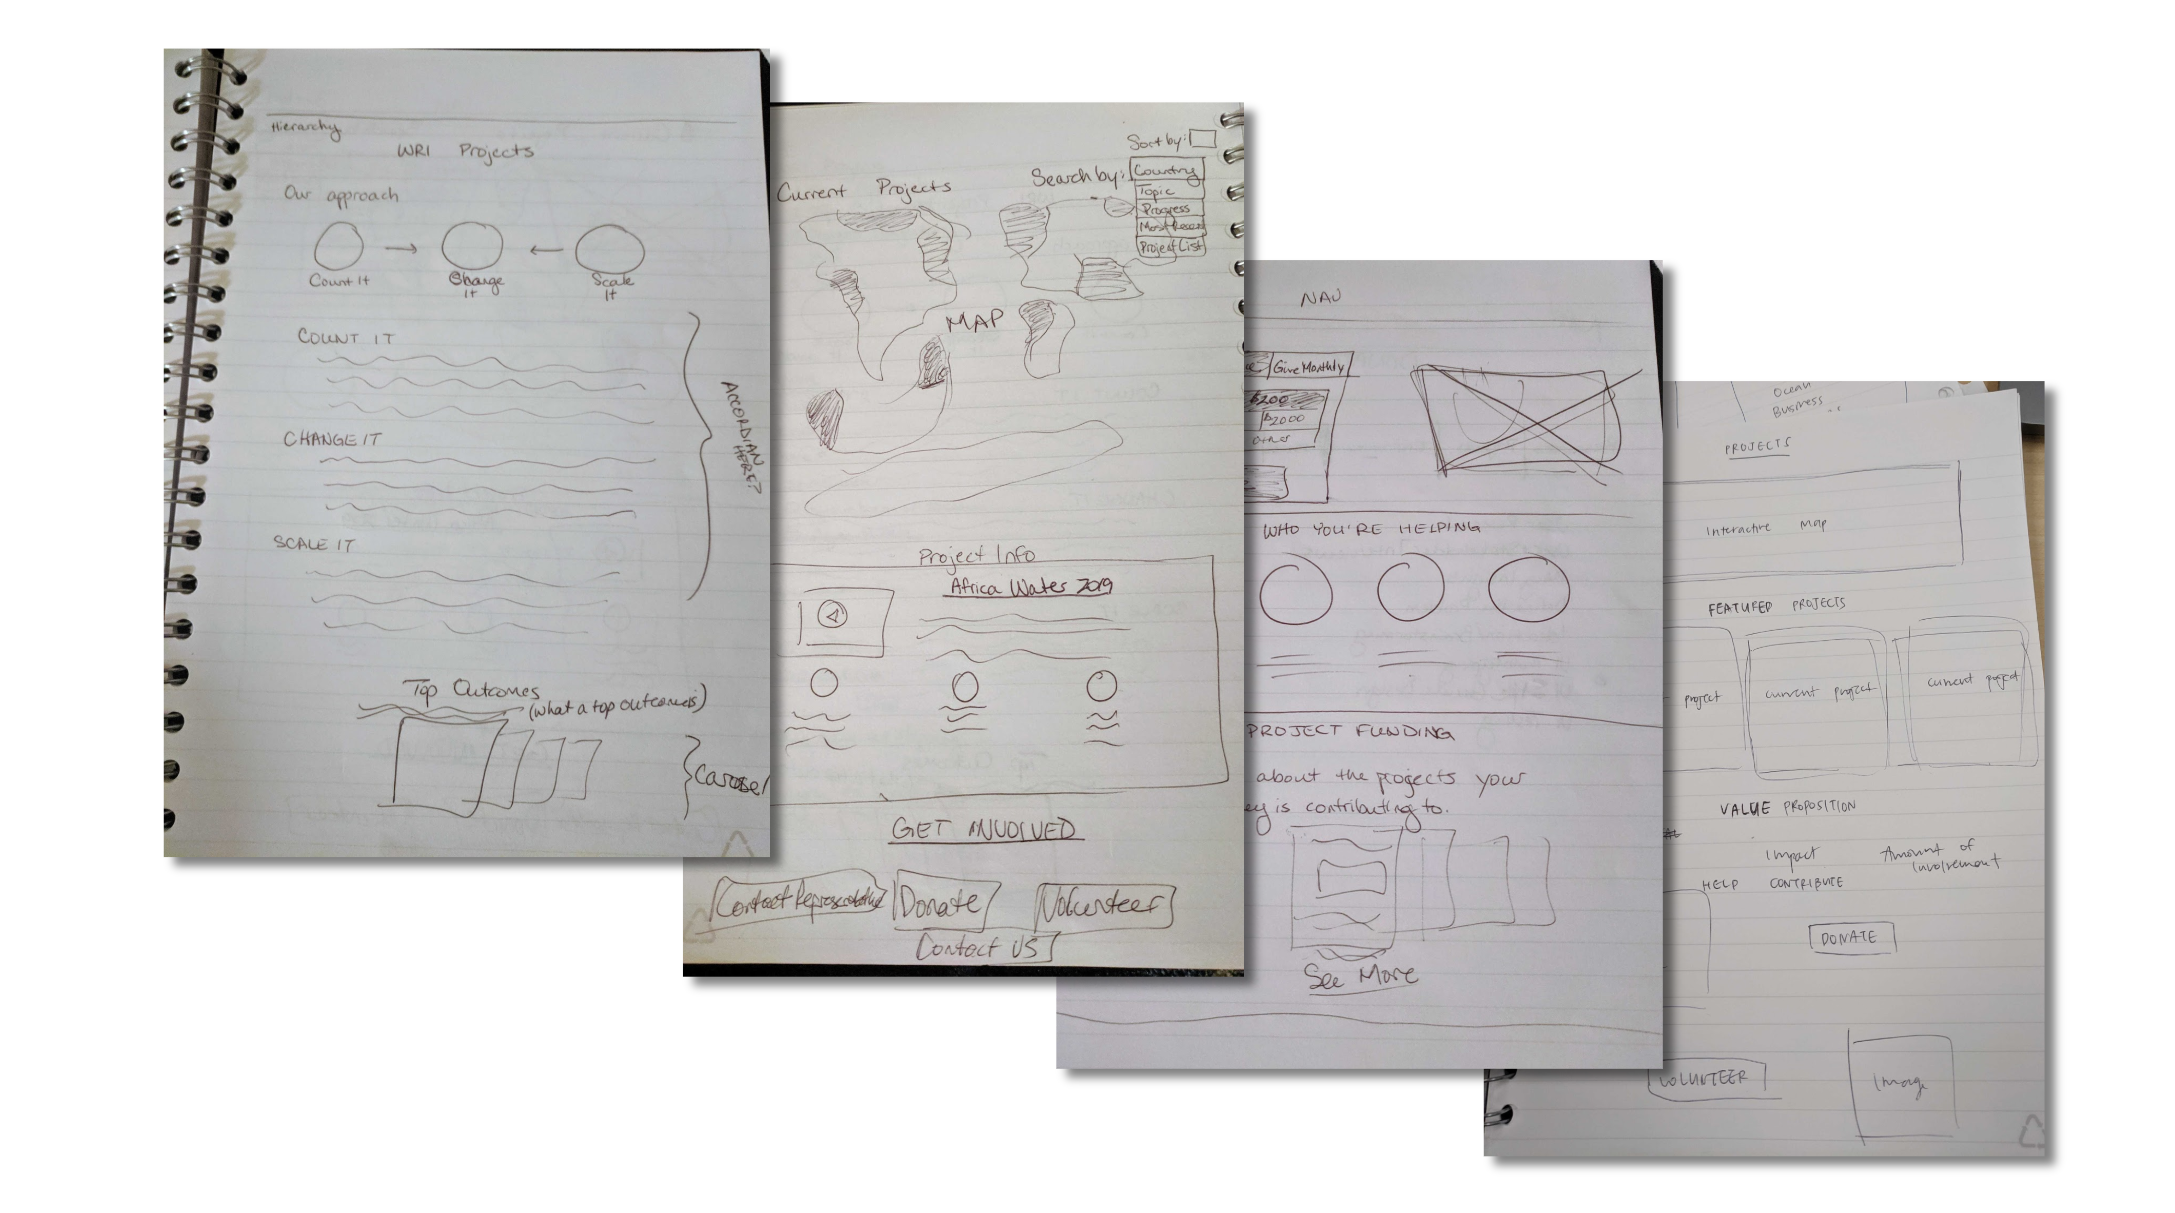 Hierarchy
WRI Projects
Our approach
Count It
Change It
Scale It
COUNT IT
CHANGE IT
SCALE IT
ACCORDIAN HERE?
Top Outcomes
(what a top outcome is)
Sort by:
Current Projects
Search by:
Country
Topic
Progress
Most Recent
Project List
MAP
Project Info
Africa Water 2019
GET INVOLVED
Contact Representative
Donate
Volunteer
Contact US
NAV
Give Monthly
$200
$2000
other
WHO YOU'RE HELPING
PROJECT FUNDING
about the projects your
ey is contributing to.
See More
Ocean
Business
PROJECTS
Interactive Map
FEATURED PROJECTS
project
current project
current project
VALUE PROPOSITION
Impact
Amount of
Involvement
HELP CONTRIBUTE
DONATE
VOLUNTEER
Image